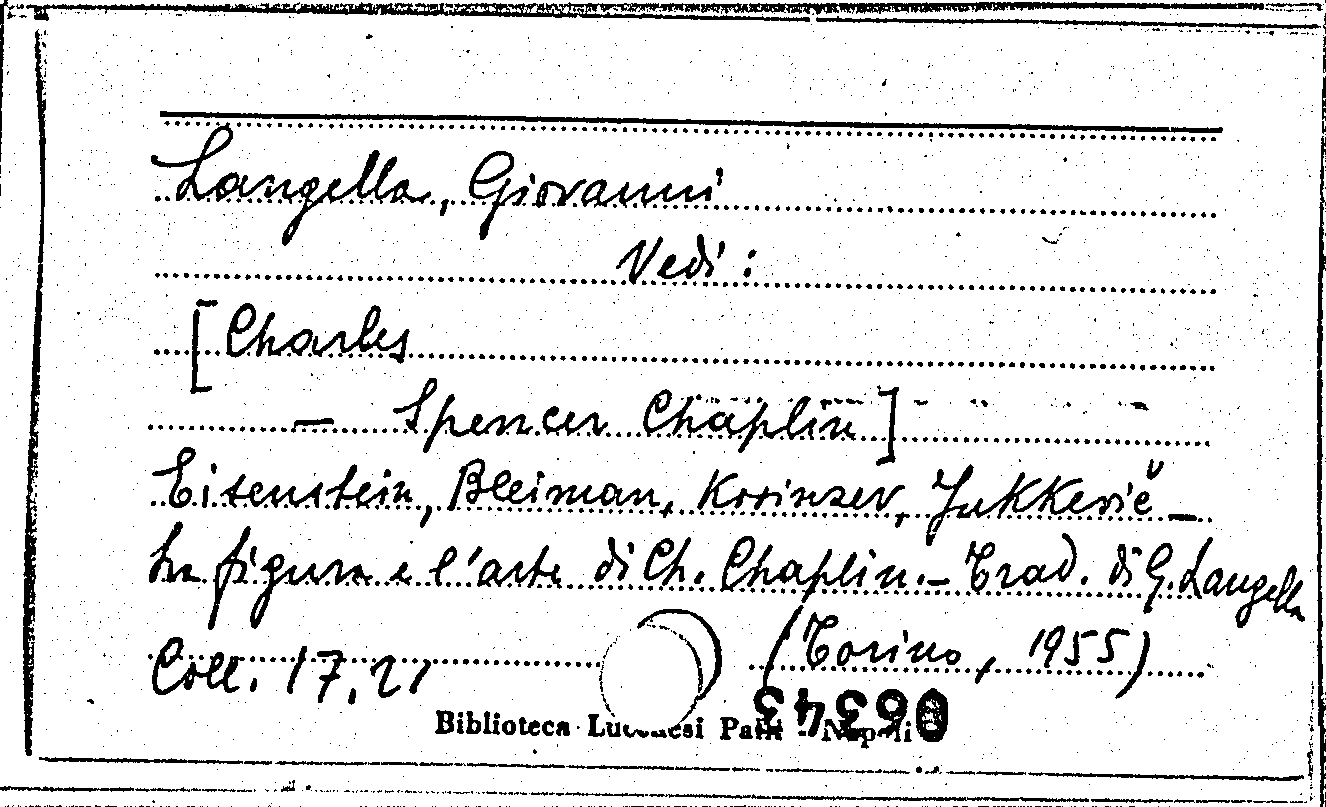 Langella, Giovanni
Vedi:
[Charles
— Spencer Chaplin]
Eisenstein, Bleiman, Kosinzev, Jutkkevič —
La figura e l'arte di Ch. Chaplin. — Trad. di G. Langella
(Torino, 1955)
Coll. 17.21
Biblioteca Lucchesi Palli - Napoli